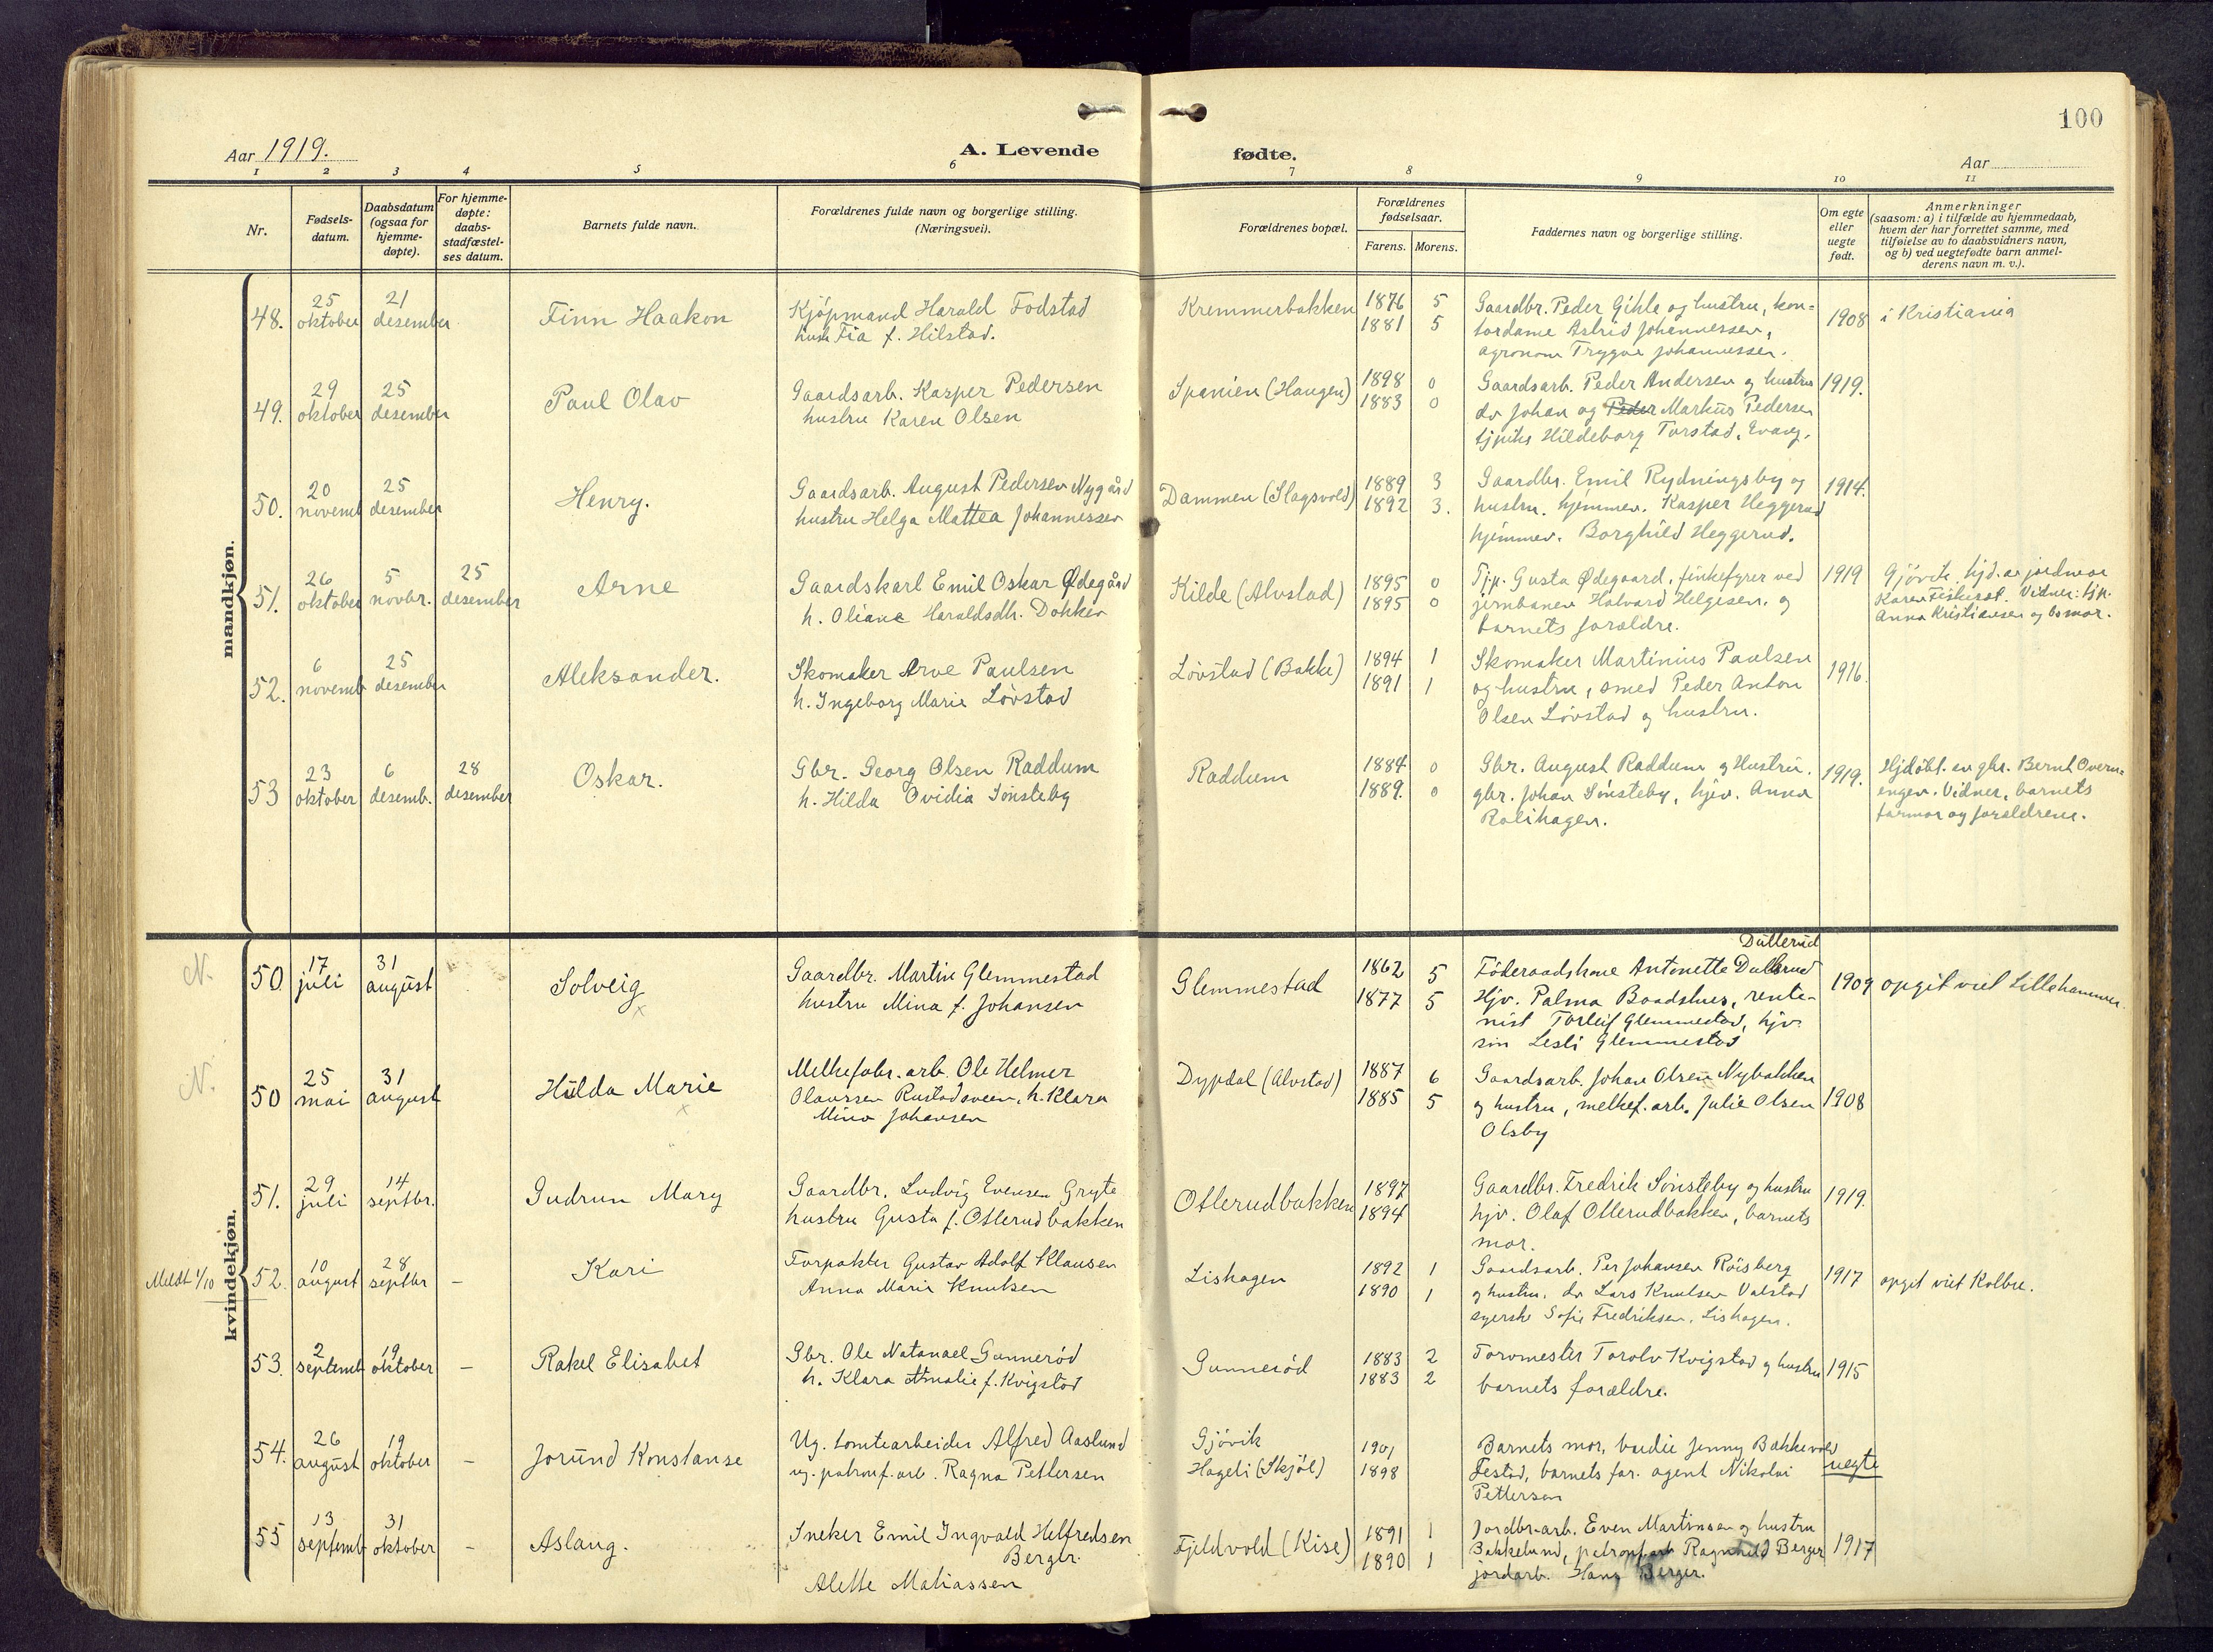 100
Aar 1919.
A. Levende fødte.
Aar
1 2 3 4 5 6 7 8 9 10 11
Nr.
Fødsels-
datum.
Daabsdatum
(ogsaa for
hjemme-
døpte).
For hjemme-
døpte:
daabs-
stadfæstel-
ses datum.
Barnets fulde navn.
Forældrenes fulde navn og borgerlige stilling.
(Næringsvei).
Forældrenes bopæl.
Forældrenes
fødselsaar.
Farens. Morens.
Faddernes navn og borgerlige stilling.
Om egte
eller
uegte
født.
Anmerkninger
(saasom: a) i tilfælde av hjemmedaab,
hvem der har forrettet samme, med
tilføielse av to daabsvidners navn,
og b) ved uegtefødte barn anmel-
derens navn m. v.).
mandkjøn.
48.
25
oktober
21
desember
Finn Haakon
Kjøpmand Harald Fodstad
hust. Fia f. Hilstad.
Kremmerbakken
1876 5
1881 5
Gaardbr. Peder Gihle og hustru, kon-
tordame Astrid Johannessen,
agronom Trygve Johannessen.
1908
i Kristiania
49.
29
oktober
25
desember
Paul Olav
Gaardsarb. Kasper Pedersen
hustru Karen Olsen
Spanien (Haugen)
1898 0
1883 0
Gaardsarb. Peder Andersen og hustru
do Johan og Peder Markus Pedersen
tjpike Hildeborg Torstad, Evang.
1919.
50.
20
novemb
25
desember
Henry.
Gaardsarb. August Pedersen Nygård
hustru Helga Mattea Johannessen
Dammen (Slagsvold)
1889 3
1892 3.
Gaardbr. Emil Rydningsby og
hustru. hjemmev. Kasper Heggerud
hjemmev. Borghild Heggerud.
1914.
51.
26
oktober
5
novbr.
25
desember
Arne
Gaardskarl Emil Oskar Ødegård
h. Oliane Haraldsdtr. Dokken
Kilde (Alvstad)
1895 0
1895 0
Tjp. Gusta Ødegaard, finkefyrer ved
jernbanen Halvard Helgesen, og
barnets forældre.
1919
Gjøvik hjd. av jordmor
Karen Fiskerst. Vidner: tjp.
Anna Kristiansen og bsmor.
52.
6
novemb
25
desember
Aleksander.
Skomaker Arve Paulsen
h. Ingeborg Marie Løvstad
Løvstad (Bakke)
1894 1
1891 1
Skomaker Martinius Paulsen
og hustru, smed Peder Anton
Olsen Løvstad og hustru.
1916.
53
23
oktober
6
desemb.
28
desember
Oskar.
Gbr. Georg Olsen Raddum
h. Hilda Ovidia Sønsteby
Raddum
1884 0
1889. 0
Gbr. August Raddum og Hustru.
gbr. Johan Sønsteby, hjev. Anna
Rolihagen.
1919.
Hjdøbt. av gbr. Bernt Overn-
engen. Vidner, barnets
farmor og forældrene.
kvindekjøn.
N.
50
17
juli
31
august
Solveig
x
Gaardbr. Martin Glemmestad
hustru Mina f. Johansen
Glemmestad
1862 5
1877 5
Dullerud
Føderaadskone Antonette Dullerud
Hjv. Palma Baadshus, rente-
nist Torleif Glemmestad, hjv.
sin Lesli Glemmestad
1909
opgit viet Lillehammer.
N.
50
25
mai
31
august
Hilda Marie
x
Melkefabr. arb. Ole Helmer
Olaussen Rustadsveen, h. Klara
Mina Johansen
Dypdal (Alvstad)
1887 6
1885 5
Gaardsarb. Johan Olsen Nybakken
og hustru, melkef. arb. Julie Olsen
Olsby
1908
51.
29
juli
14
septbr.
Gudrun Mary
Gaardbr. Ludvig Evensen Gryte
hustru Gusta f. Ollerudbakken
Ollerudbakken
1897
1894
Gaardbr. Fredrik Sønsteby og hustru
hjv. Olaf Ollerudbakken, barnets
mor.
1919.
Meldt 1/10
52.
10
august
28
septbr
–
Kari
Forpakter Gustav Adolf Klausen
Anna Marie Knutsen
Lishagen
1892 1
1890 1
Gaardsarb. Per Johansen Röisberg
og hustru. do Lars Knutsen Valstad
syerske Sofie Fredriksen, Lishagen.
1917
opgit viet Kolbu.
53.
2
septemb
19
oktober
–
Rakel Elisabet
Gbr. Ole Natanael Gunnerød
h. Klara Amalie f. Kvigstad
Gunnerød
1883 2
1883 2
Torvmester Torolv Kvigstad og hustru
barnets forældre.
1915
54.
26
august
19
oktober
–
Jorund Konstanse
Ug. tomtearbeider Alfred Aaslund
ug. patronf. arb. Ragna Pettersen
Gjøvik
Hageli (Skjøl)
1901
1898
Barnets mor, budeie Jenny Bakkevold
Festad, barnets far. agent Nikolai
Pettersen
uegte
55
13
septemb
31
oktober
–
Aslaug.
Sneker Emil Ingvald Helfredsen
Berger.
Alette Matiassen
Fjeldvold (Kise)
1891 1
1890 1
Jordbr. arb. Even Martinsen og hustru
Bakkelund, patronf. arb Ragnhild Berger
jordarb. Hans Berger.
1917